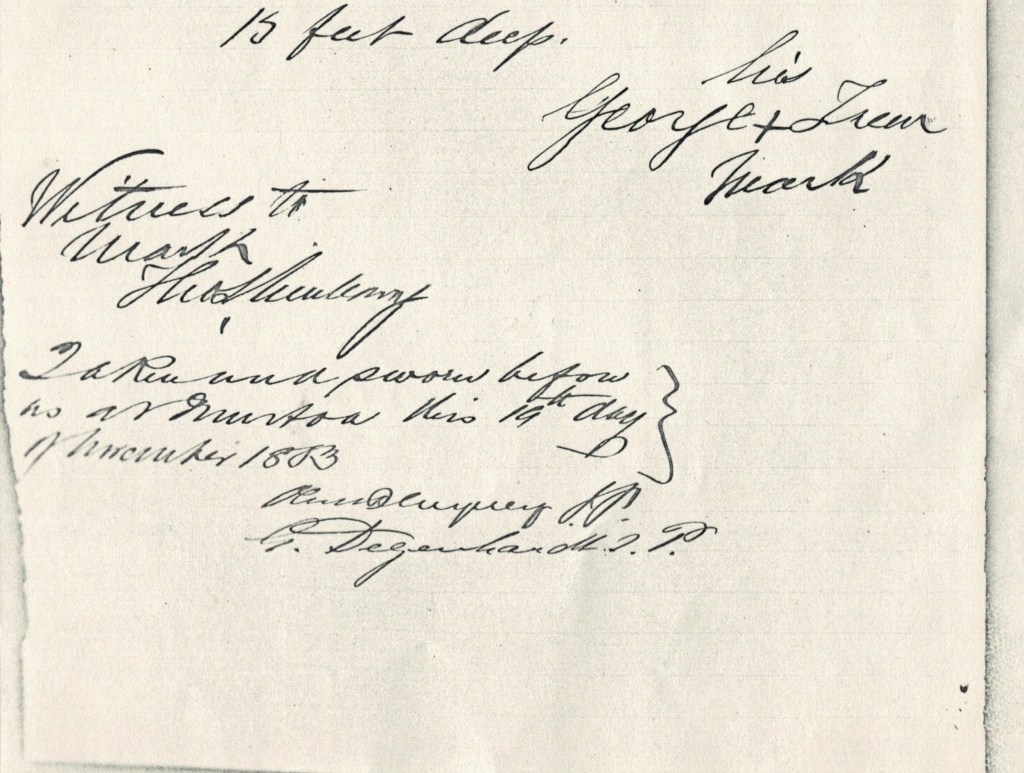 15 feet deep.
his
George +
mark
Witness to
mark
Thos
Taken and sworn before
us at Murtoa this 19th day
of November 1883
J.P.
G. Degenhardt J.P.